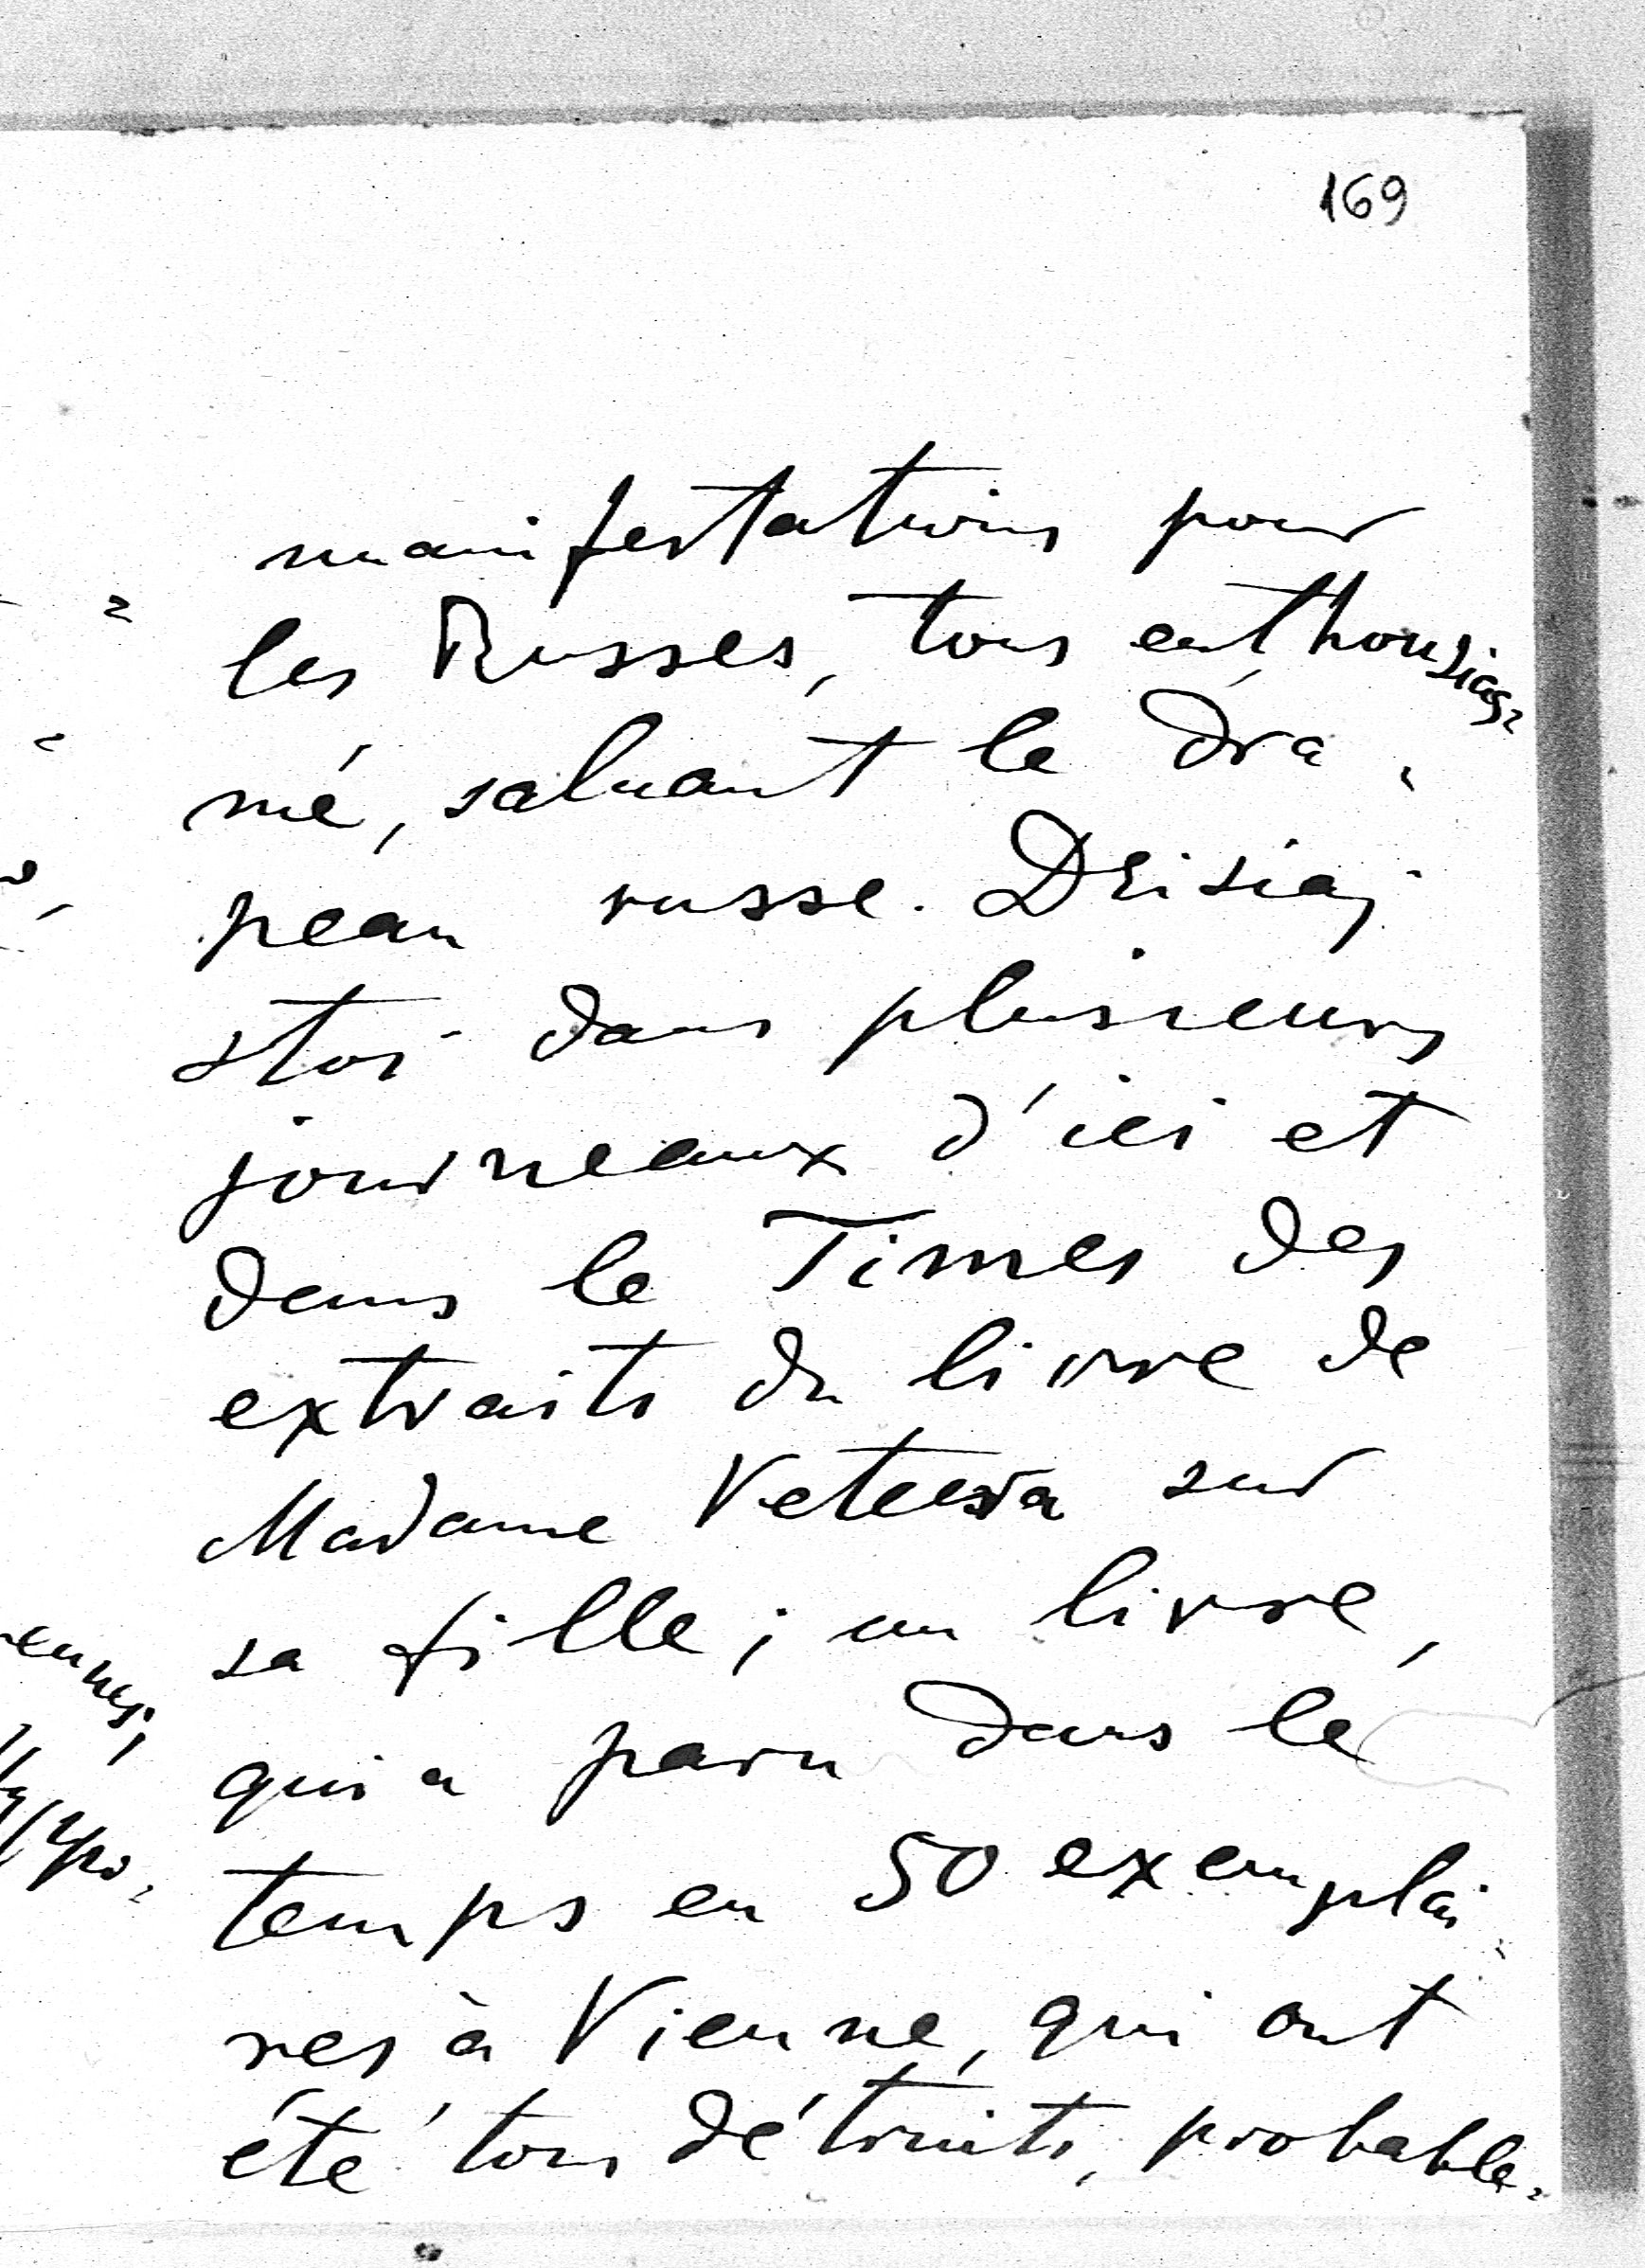 169
manifestations pour
les Russes, tous enthousias-
mé, saluant le dra-
peau russe. Drisiaj
stoi dans plusieurs
journeaux d'ici et
dans le Times des
extraits du livre de
Madame Vetsera sur
sa fille; un livre,
qui a paru dans le
temps en 50 exemplai-
res à Vienne, qui ont
été tous détruits, probable-